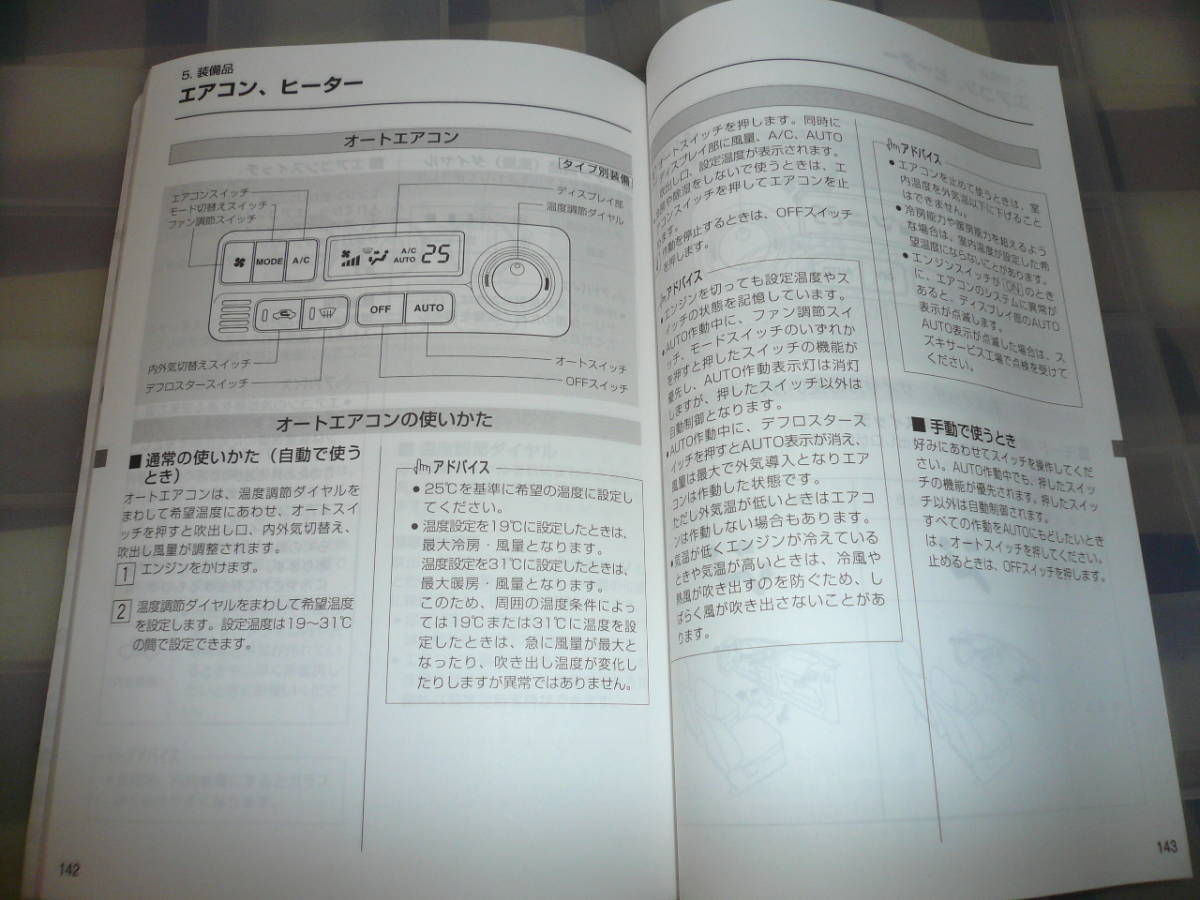 5. 装備品
エアコン、ヒーター
オートエアコン
タイプ別装備
エアコンスイッチ
モード切替えスイッチ
ファン調節スイッチ
ディスプレイ部
温度調節ダイヤル
MODE
A/C
A/C
AUTO
25
OFF
AUTO
内外気切替えスイッチ
デフロスタースイッチ
オートスイッチ
OFFスイッチ
オートエアコンの使いかた
■通常の使いかた（自動で使う
とき）
オートエアコンは、温度調節ダイヤルを
まわして希望温度にあわせ、オートスイ
ッチを押すと吹出し口、内外気切替え、
吹出し風量が調整されます。
1 エンジンをかけます。
2 温度調節ダイヤルをまわして希望温度
を設定します。設定温度は19～31℃
の間で設定できます。
アドバイス
●25℃を基準に希望の温度に設定し
てください。
●温度設定を19℃に設定したときは、
最大冷房・風量となります。
温度設定を31℃に設定したときは、
最大暖房・風量となります。
このため、周囲の温度条件によっ
ては19℃または31℃に温度を設
定したときは、急に風量が最大と
なったり、吹き出し温度が変化し
たりしますが異常ではありません。
142
オートスイッチを押します。同時に
ディスプレイ部に風量、A/C、AUTO
吹出し口、設定温度が表示されます。
や除湿をしないで使うときは、エ
コンスイッチを押してエアコンを止
ます。
作動を停止するときは、OFFスイッチ
を押します。
アドバイス
●エンジンを切っても設定温度やス
イッチの状態を記憶しています。
●AUTO作動中に、ファン調節スイ
ッチ、モードスイッチのいずれか
を押すと押したスイッチの機能が
優先し、AUTO作動表示灯は消灯
しますが、押したスイッチ以外は
自動制御となります。
●AUTO作動中に、デフロスタース
イッチを押すとAUTO表示が消え、
風量は最大で外気導入となりエア
コンは作動した状態です。
ただし外気温が低いときはエアコ
ンは作動しない場合もあります。
●気温が低くエンジンが冷えている
ときや気温が高いときは、冷風や
熱風が吹き出すのを防ぐため、し
ばらく風が吹き出さないことがあ
ります。
アドバイス
●エアコンを止めて使うときは、室
内温度を外気温以下に下げること
はできません。
●冷房能力や暖房能力を超えるよう
な場合は、室内温度が設定した希
望温度にならないことがあります。
●エンジンスイッチが[ON]のとき
に、エアコンのシステムに異常が
あると、ディスプレイ部のAUTO
表示が点滅します。
AUTO表示が点滅した場合は、ス
ズキサービス工場で点検を受けて
ください。
■手動で使うとき
好みにあわせてスイッチを操作してくだ
さい。AUTO作動中でも、押したスイッ
チの機能が優先されます。押したスイッ
チ以外は自動制御されます。
すべての作動をAUTOにもどしたいとき
は、オートスイッチを押してください。
止めるときは、OFFスイッチを押します。
143